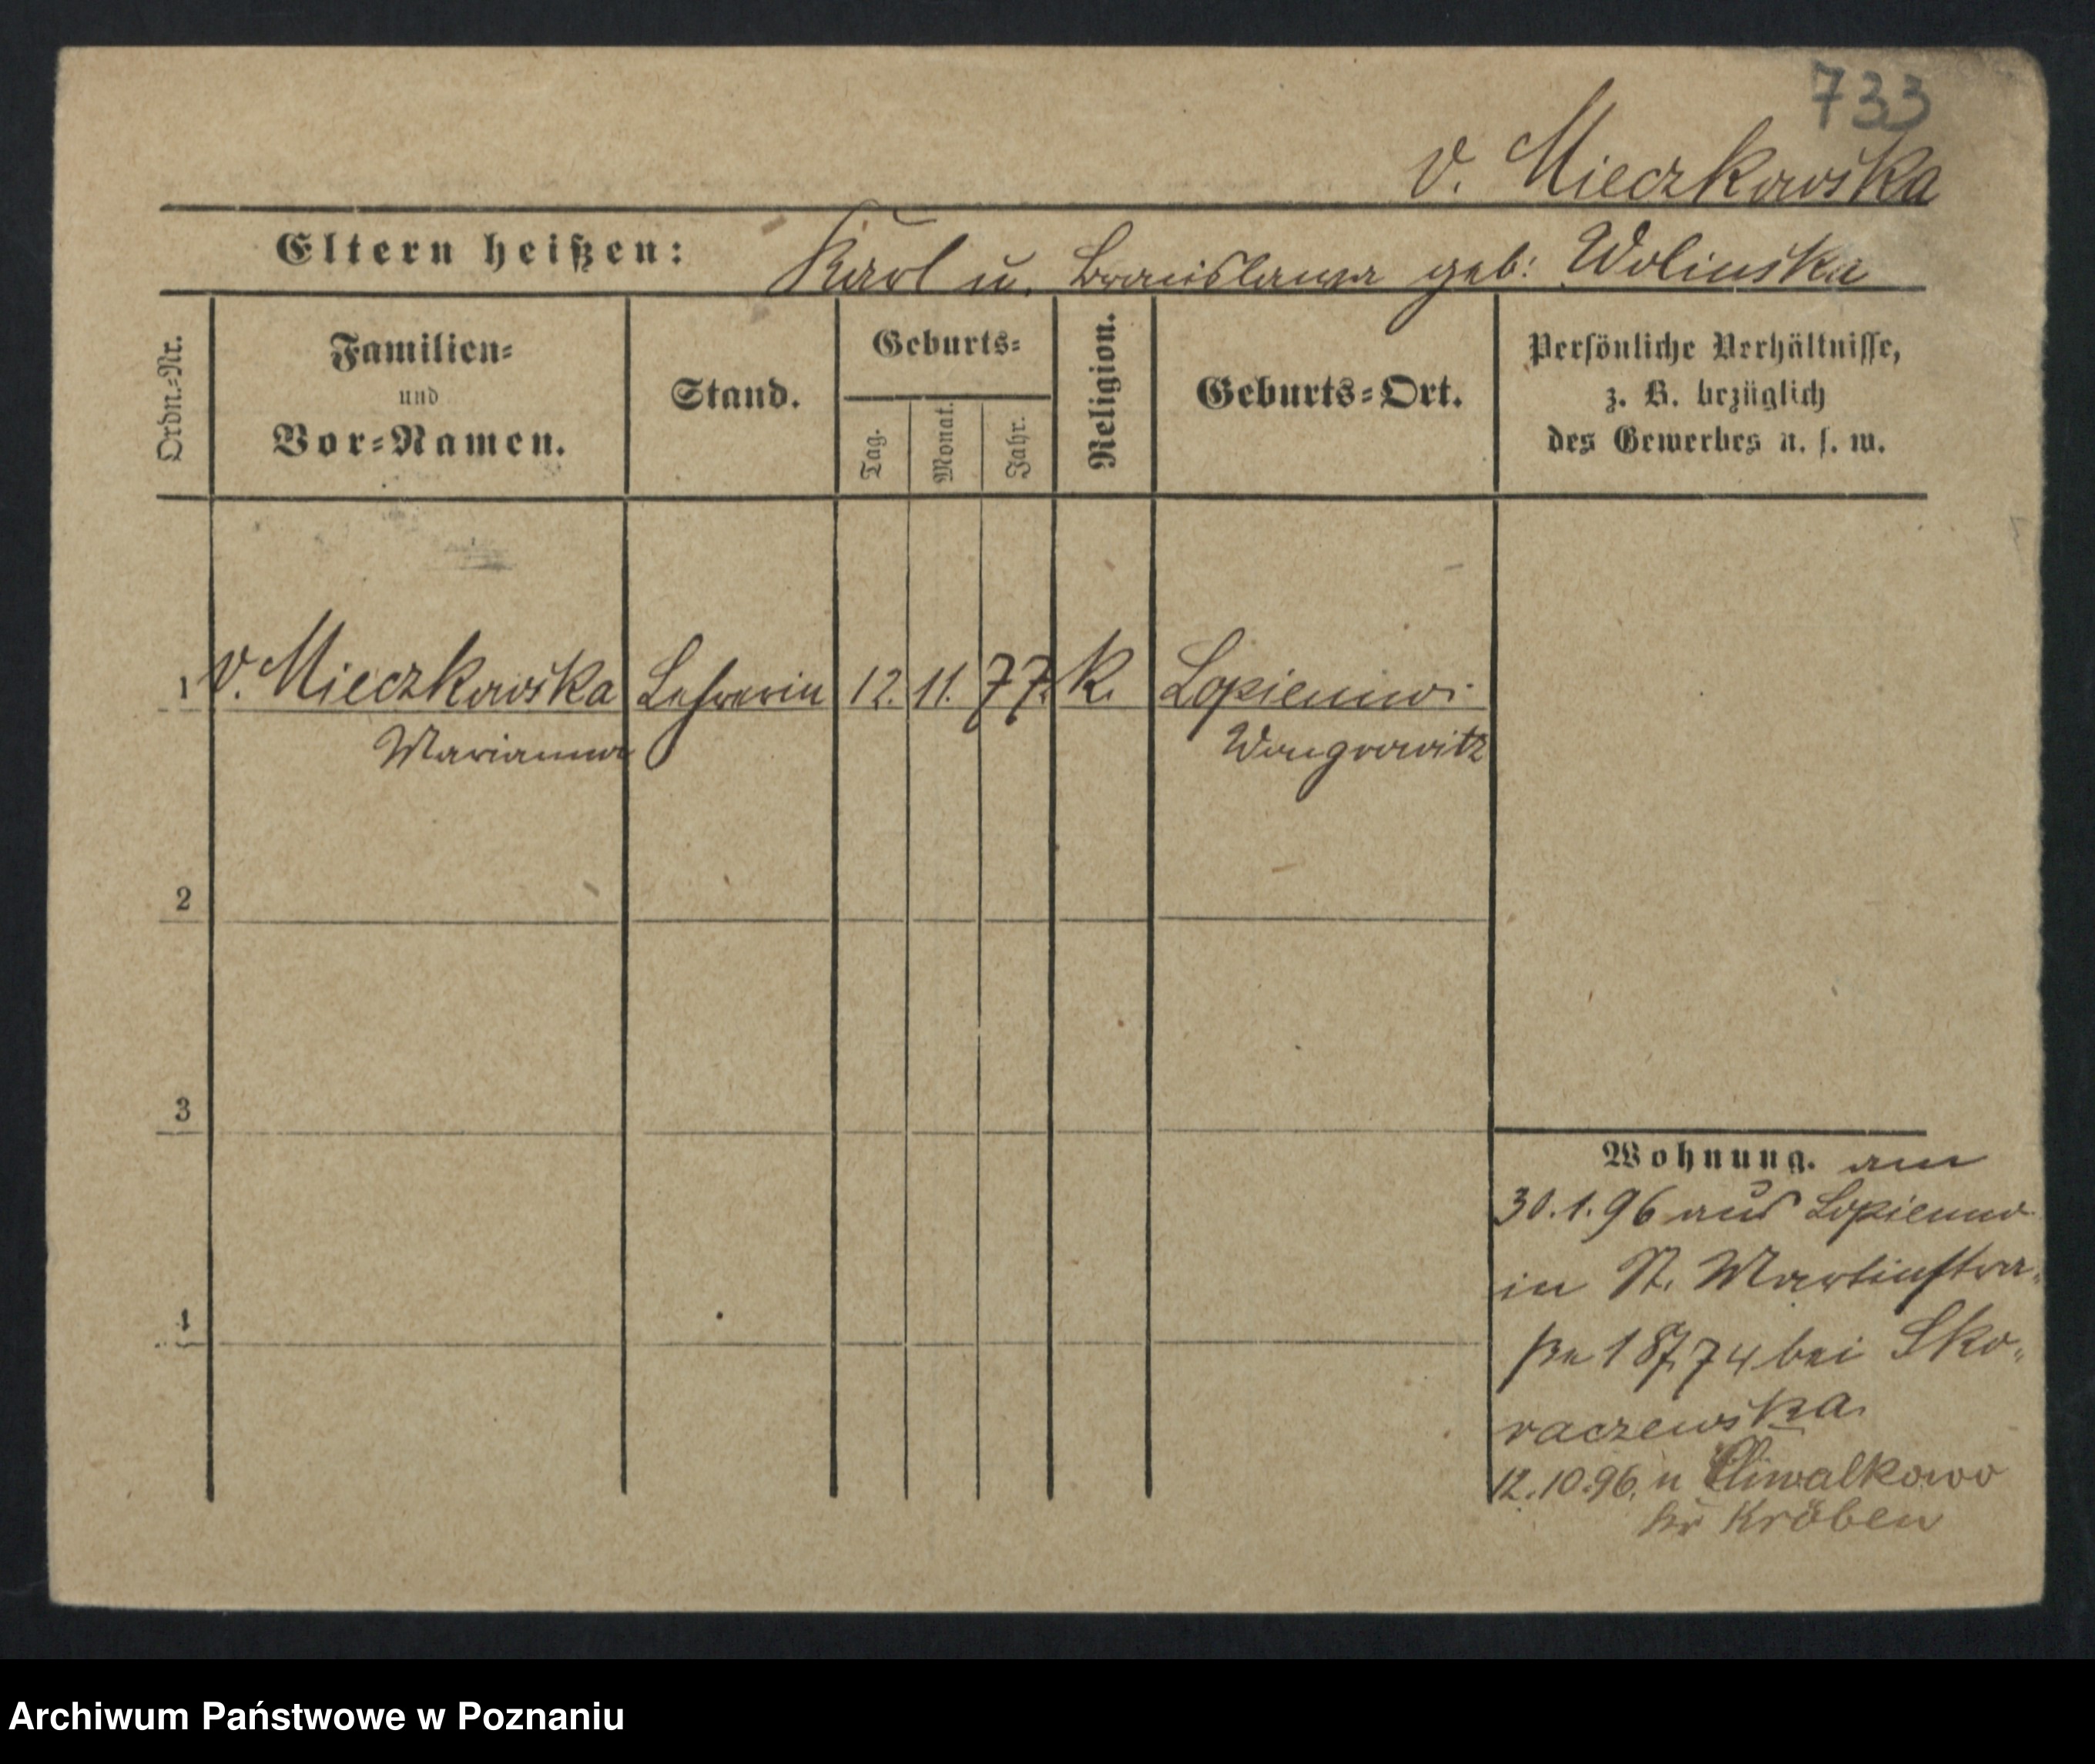 733
v. Mieczkowska
Eltern heißen: Karl u. Bronislawa geb: Wolinska
Ordn.=Nr.
Familien=
und
Vor=Namen.
Stand.
Geburts=
Tag.
Monat.
Jahr.
Religion.
Geburts=Ort.
Persönliche Verhältnisse,
z. B. bezüglich
des Gewerbes u. s. w.
1 v. Mieczkowska Lehrerin 12. 11. 77. k. Lopienno
Marianna Wongrowitz
2
3
4
Wohnung. am
30.1.96 aus Lopienno
in St. Martinstra-
ße 74 bei Sko-
raczewska.
12.10.96. n
Kr Kröben
Archiwum Państwowe w Poznaniu